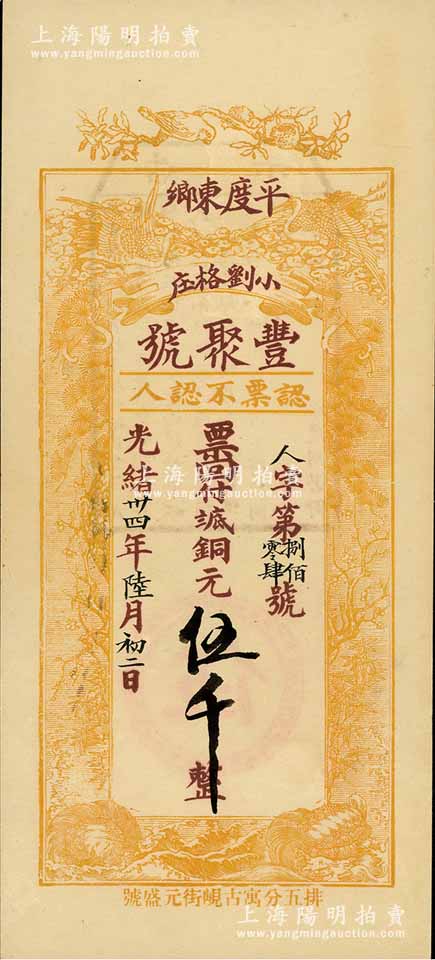 上海陽明拍賣
www.yangmingauction.com
平度東鄉
小劉格庄
豐聚號
認票不認人
人字第捌佰零肆號
票㨿詆銅元伍千整
光緒卅四年陸月初二日
上海陽明拍賣
www.yangmingauction.com
排五分寓古峴街元盛號
上海陽明拍賣
www.yangmingauction.com